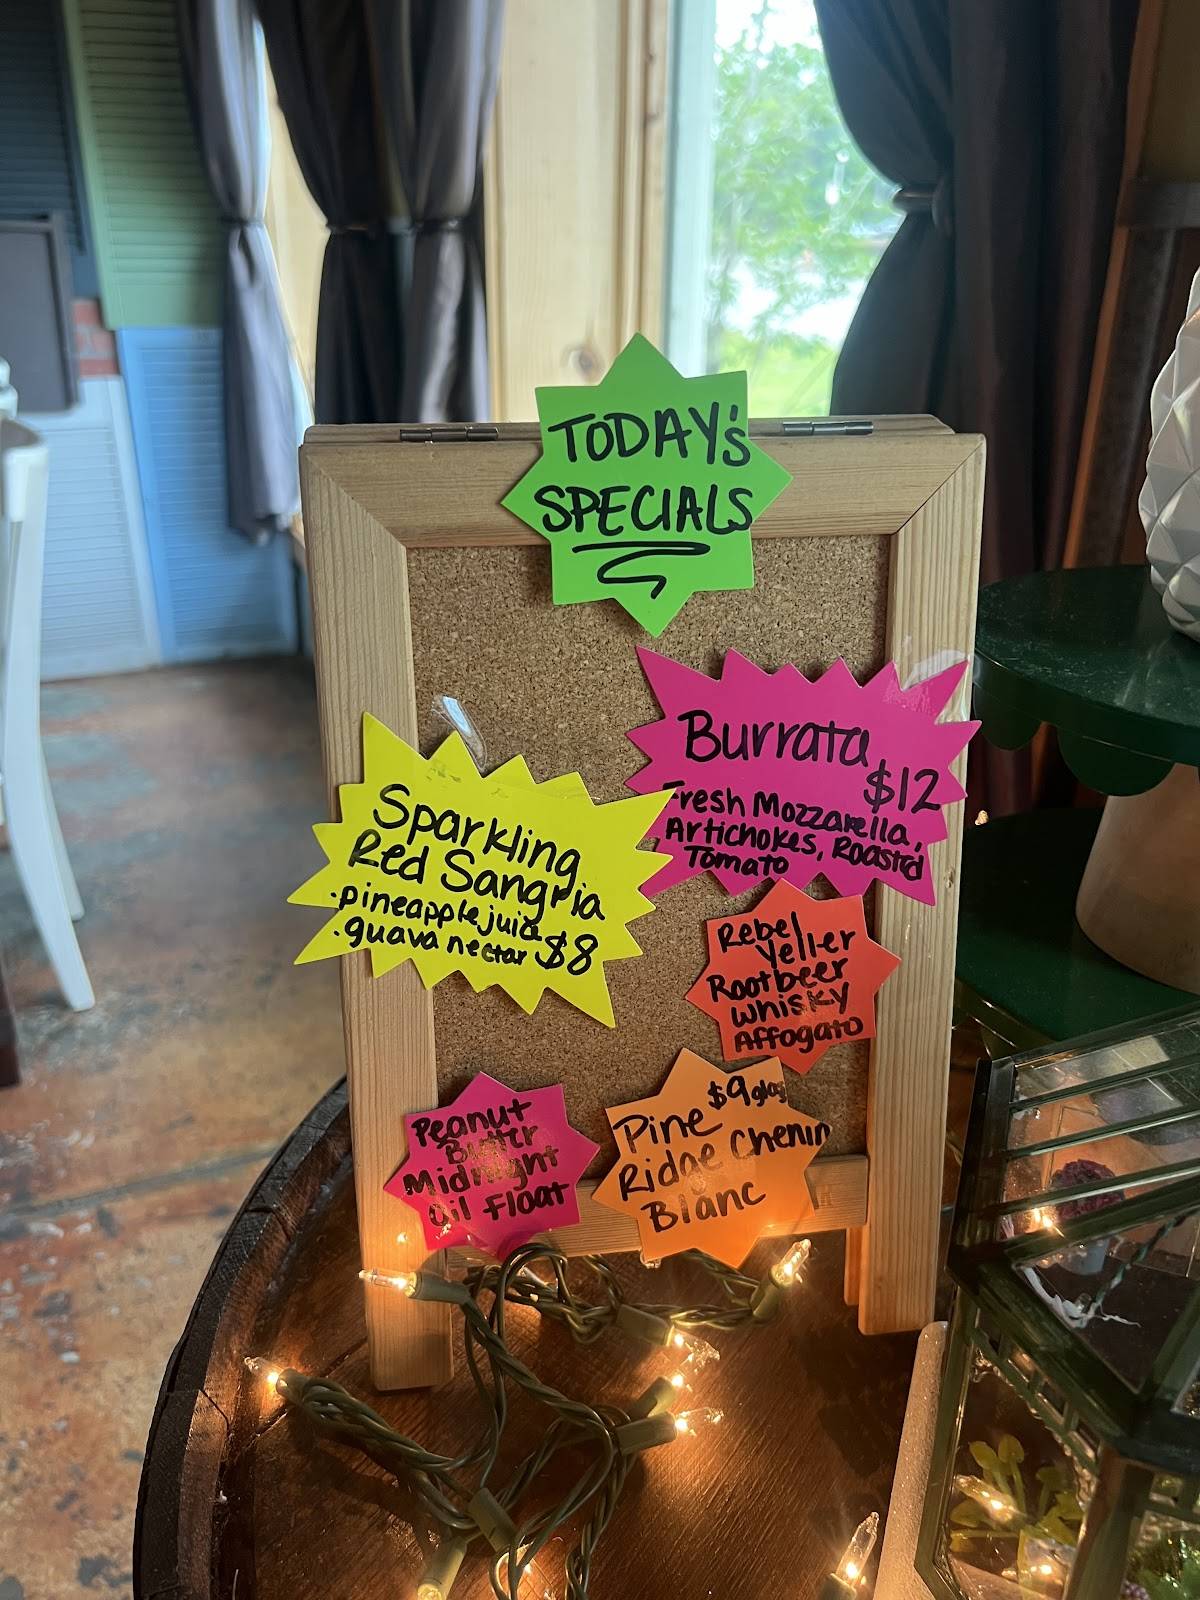 TODAY's
SPECIALS
Burrata
$12
Fresh Mozzarella,
Artichokes, Roasted
Tomato
Sparkling
Red Sangria
.pineapple juice
.guava nectar $8
Rebel
Yeller
Rootbeer
Whisky
Affogato
Peanut
Butter
Midnight
Oil Float
$9 glass
Pine
Ridge Chenin
Blanc